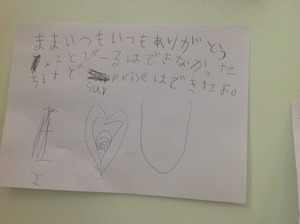 ままいついつもありがとう
ことびーるはできなかった
けど surpriseはできたよ。
I